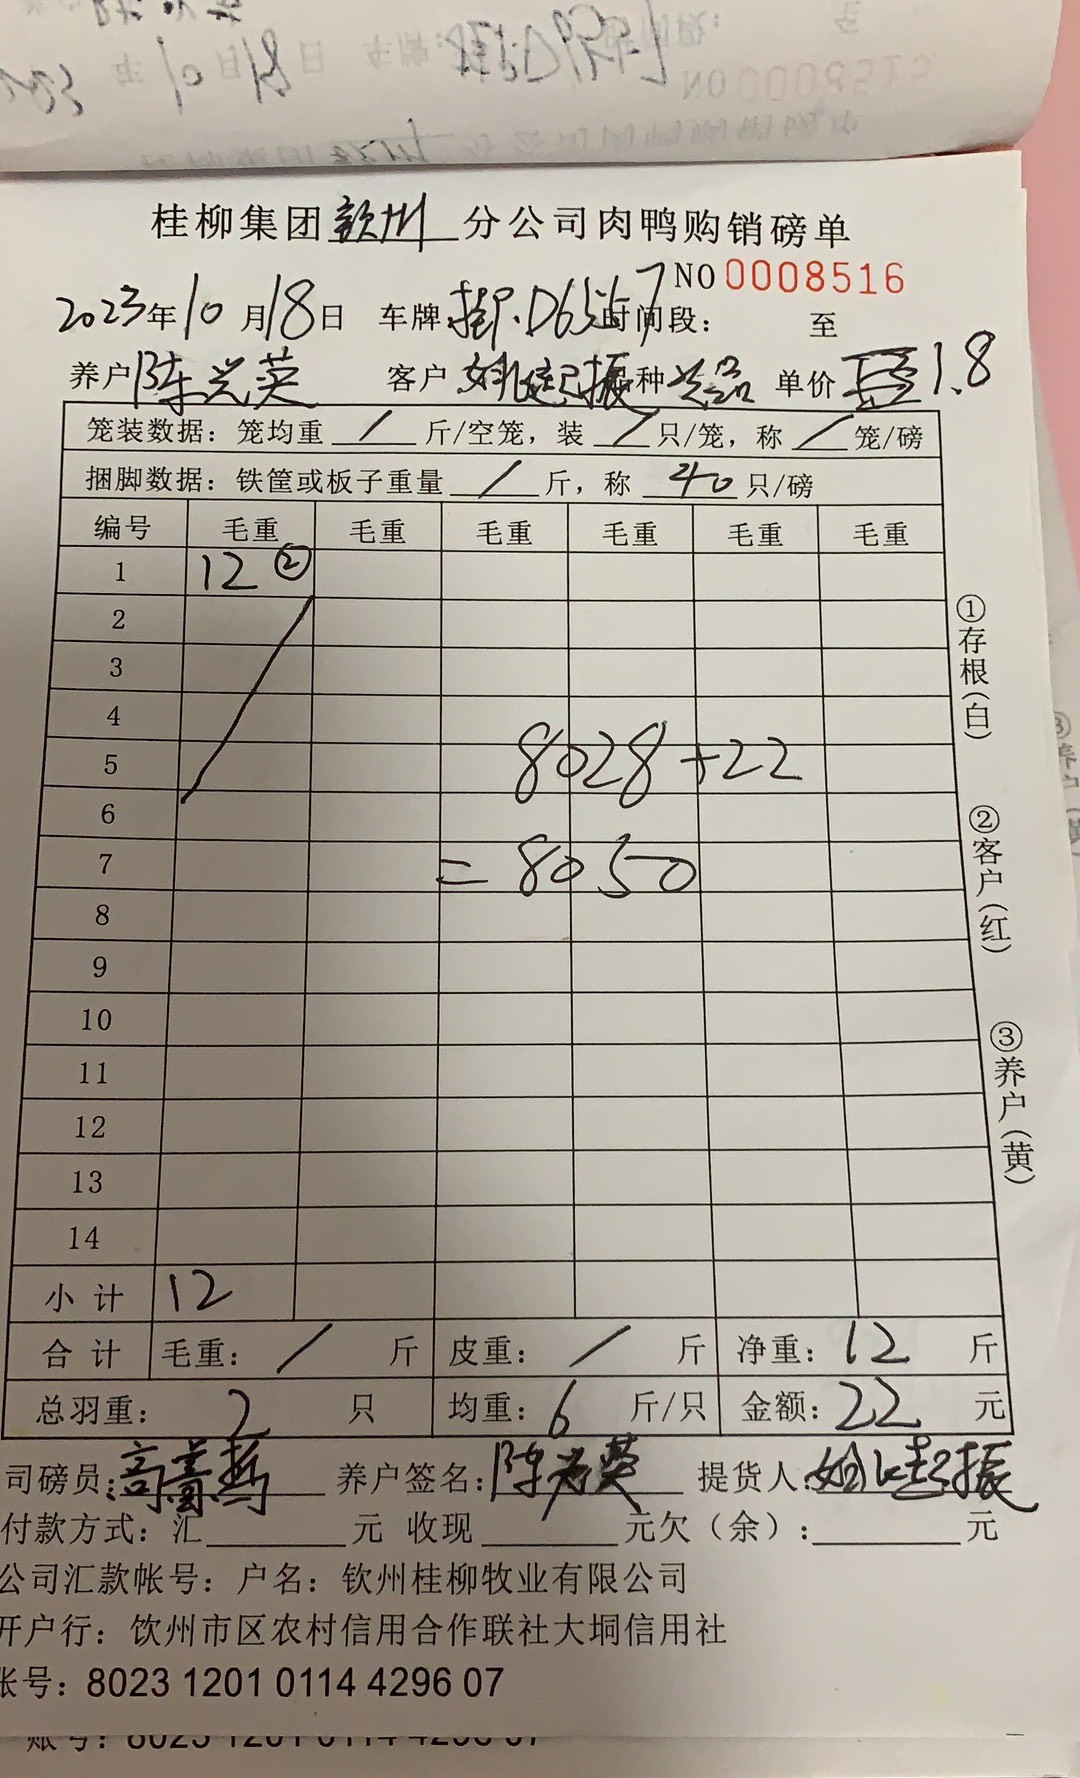 NO 0008515
桂柳集团钦州分公司肉鸭购销磅单
NO 0008516
2023年10月18日 车牌:桂P·D6567 时间段: 至
养户陈兰英 客户 姚起振 品种 单价 1.8
笼装数据:笼均重 / 斤/空笼,装 / 只/笼,称 / 笼/磅
捆脚数据:铁筐或板子重量 / 斤,称 40 只/磅
编号 毛重 毛重 毛重 毛重 毛重 毛重
1 12 ②
2
3
4
5 8028+22
6
7 =8050
8
9
10
11
12
13
14
小计 12
合计 毛重: / 斤 皮重: / 斤 净重:12 斤
总羽重: 2 只 均重:6 斤/只 金额:22 元
司磅员: 养户签名:陈兰英 提货人:姚起振
付款方式:汇 元 收现 元欠(余): 元
公司汇款帐号:户名:钦州桂柳牧业有限公司
开户行:饮州市区农村信用合作联社大垌信用社
账号:8023 1201 0114 4296 07
①存根(白) ②客户(红) ③养户(黄)
账号:8023 1201 0114 4296 07